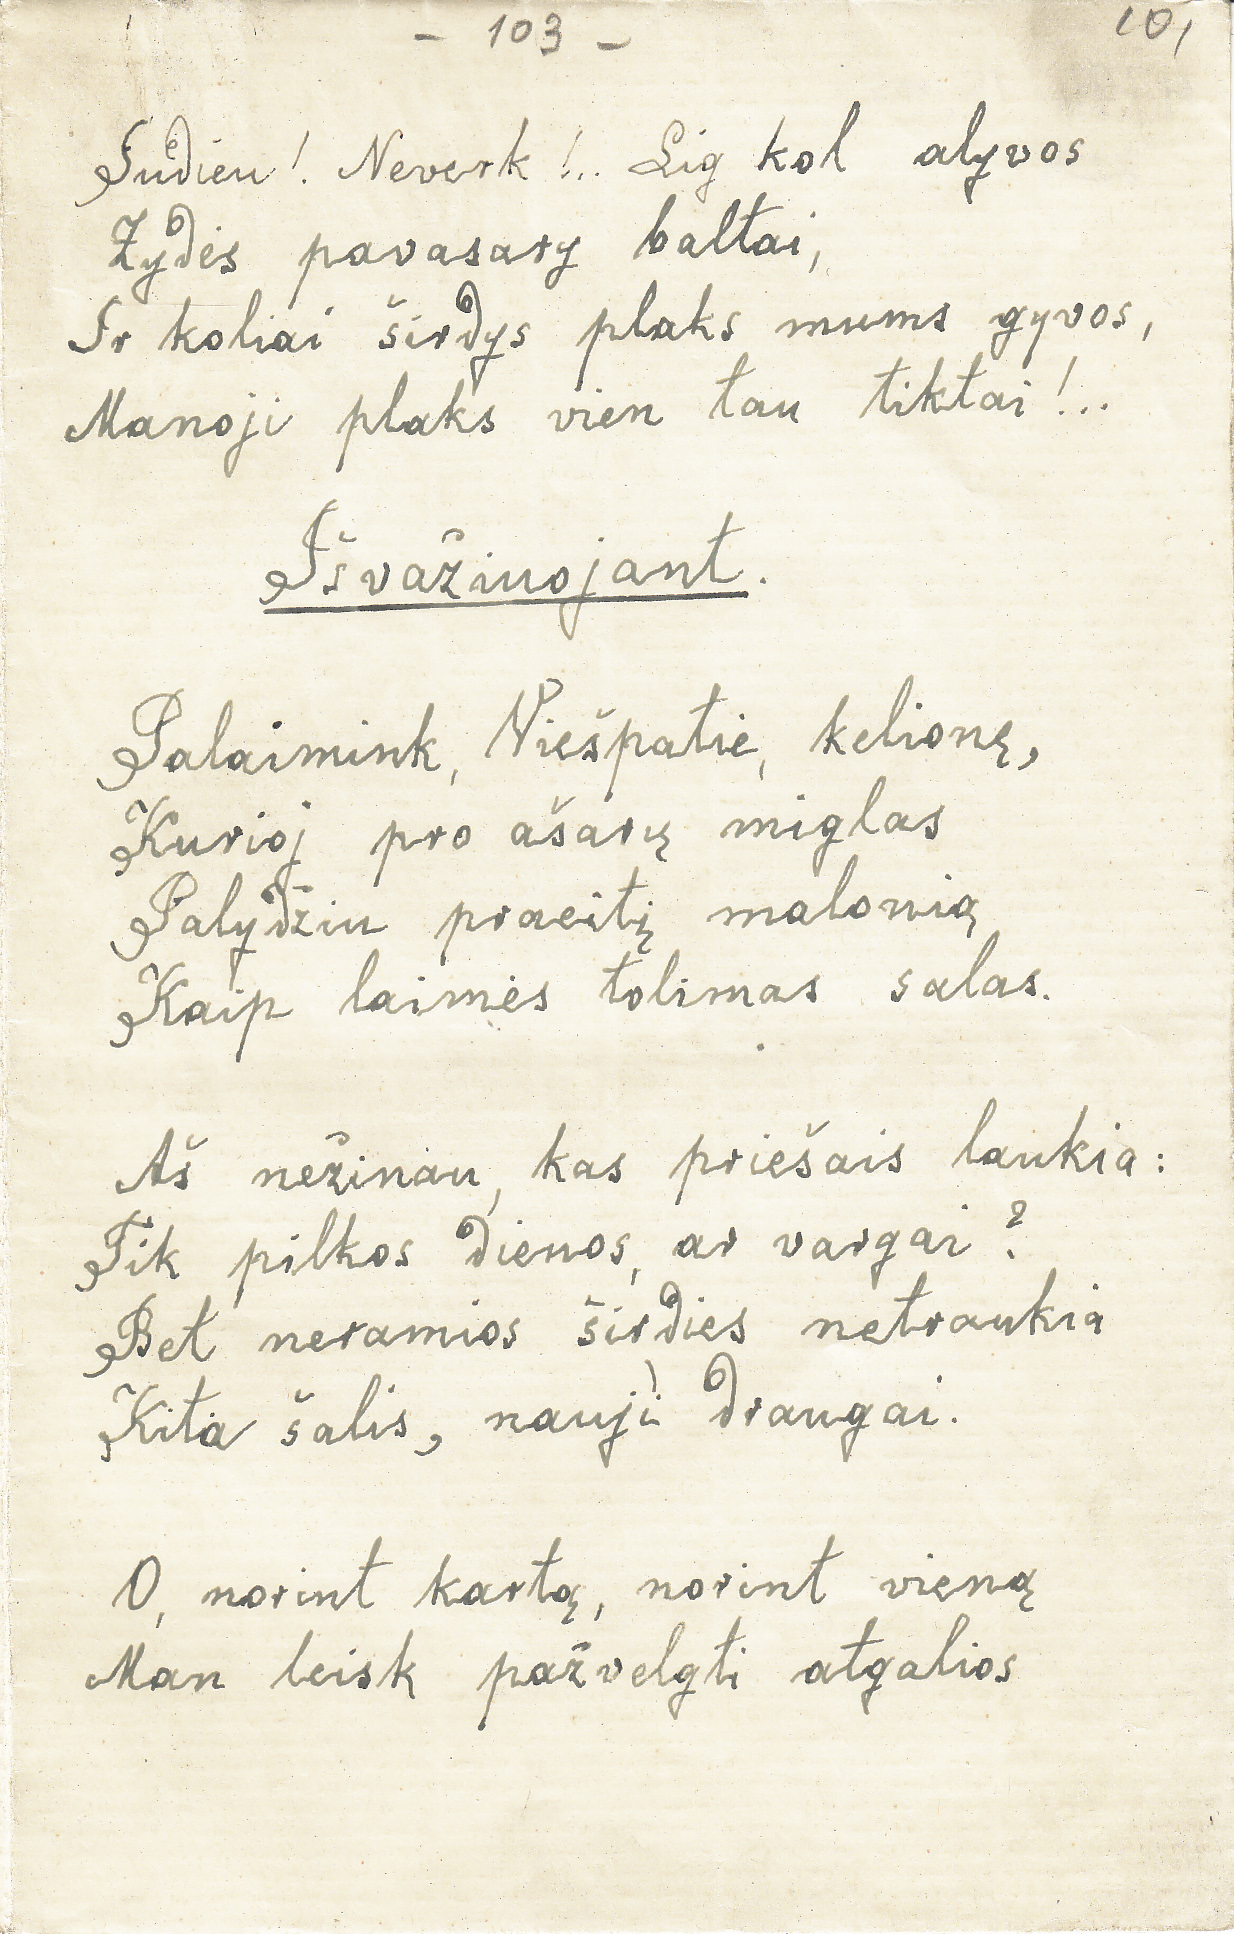 - 103 -
101
Sudieu! Neverk!.. Lig kol alyvos
Žydės pavasary baltai,
Ir koliai širdys plaks mums gyvos,
Manoji plaks vien tau tiktai!..
Išvažiuojant.
Palaimink, Viešpatie, kelionę,
Kurioj pro ašarų miglas
Palydžiu praeitį malonią
Kaip laimės tolimas salas.
Aš nežinau, kas priešais laukia:
Tik pilkos dienos, ar vargai?
Bet neramios širdies netraukia
Kita šalis, nauji draugai.
O, norint kartą, norint vieną
Man leisk pažvelgti atgalios